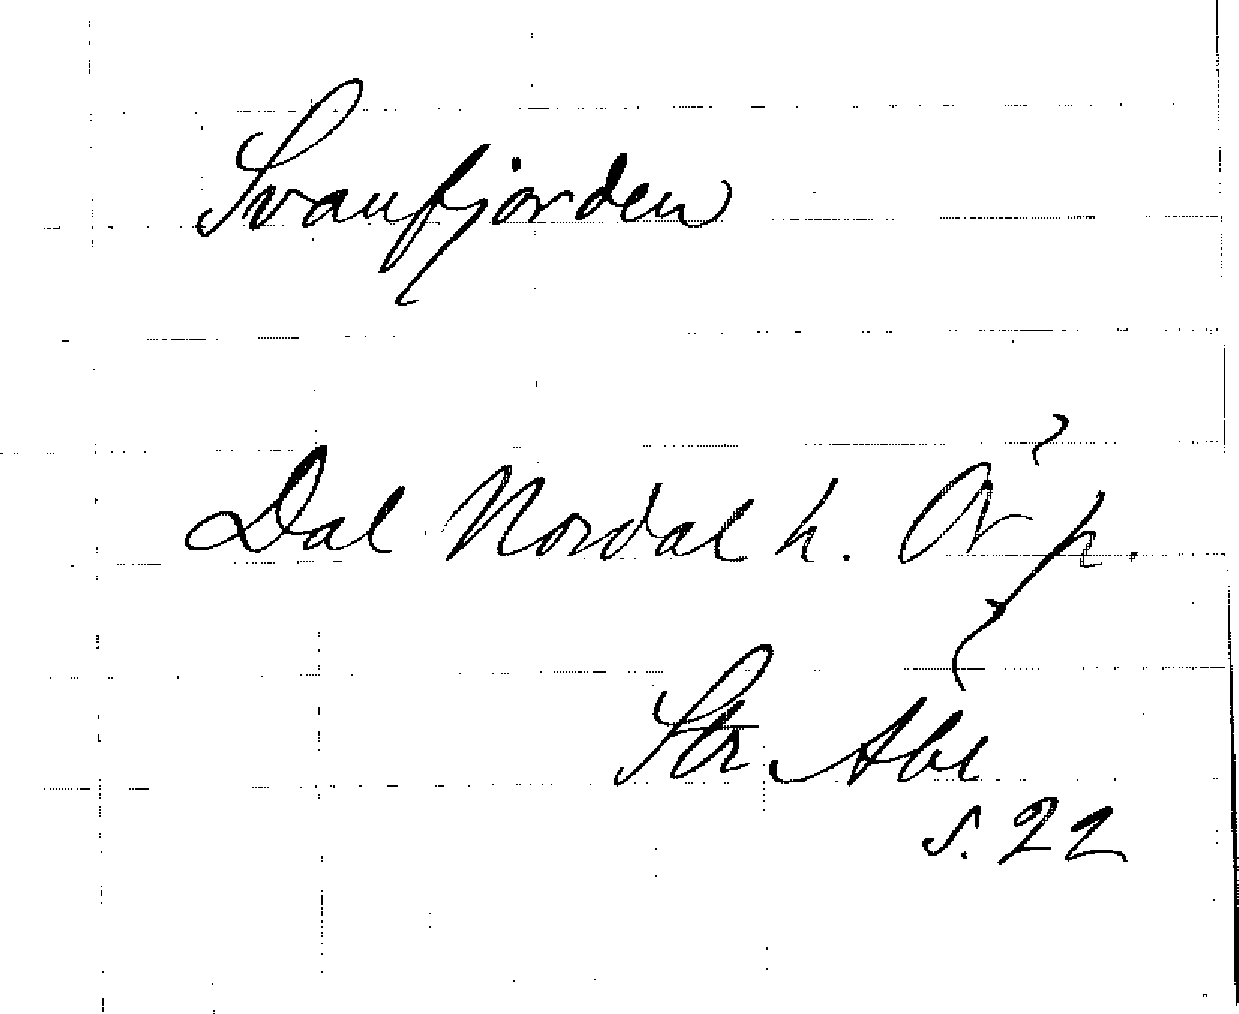 Svanfjorden
Dal Nordal h. Ör p.
Str. Abr
s. 22